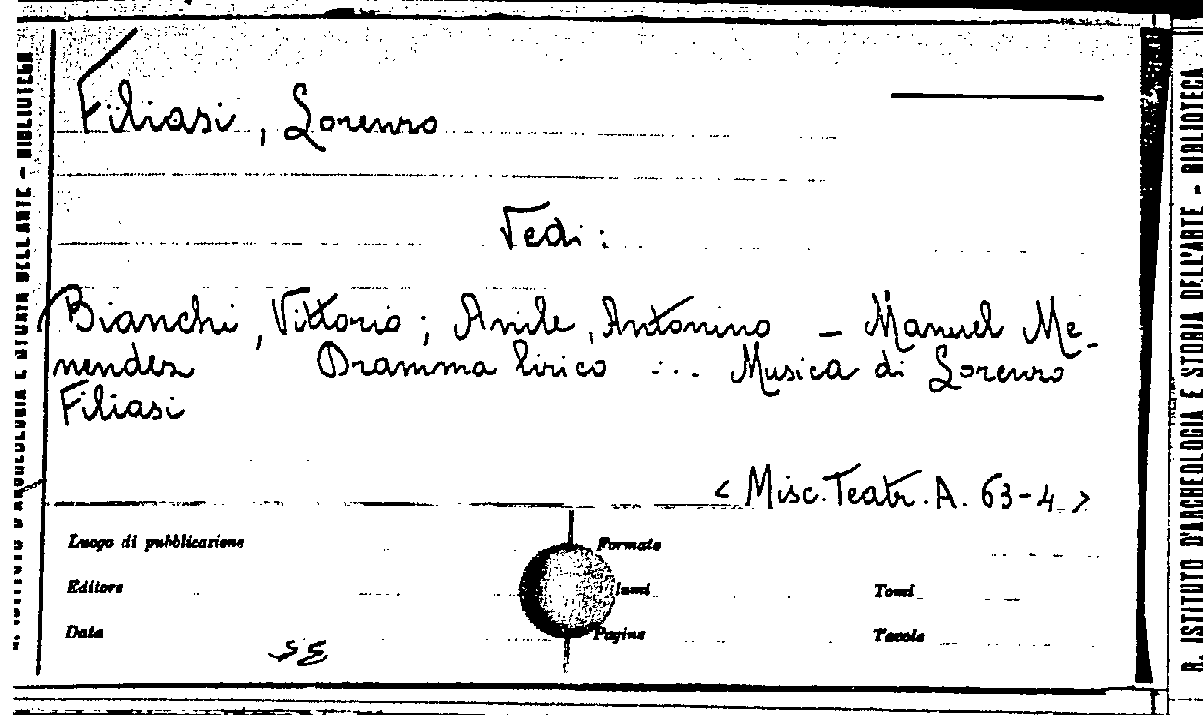 R. ISTITUTO D'ARCHEOLOGIA E STORIA DELL'ARTE – BIBLIOTECA
Filiasi, Lorenzo
Vedi:
Bianchi, Vittorio; Anile, Antonino – Manuel Me-
nendez Dramma lirico ... Musica di Lorenzo
Filiasi
< Misc. Teatr. A. 63-4 >
Luogo di pubblicazione Formato
Editore lumi Tomi
Data Pagine Tavole
R. ISTITUTO D'ARCHEOLOGIA E STORIA DELL'ARTE - BIBLIOTECA